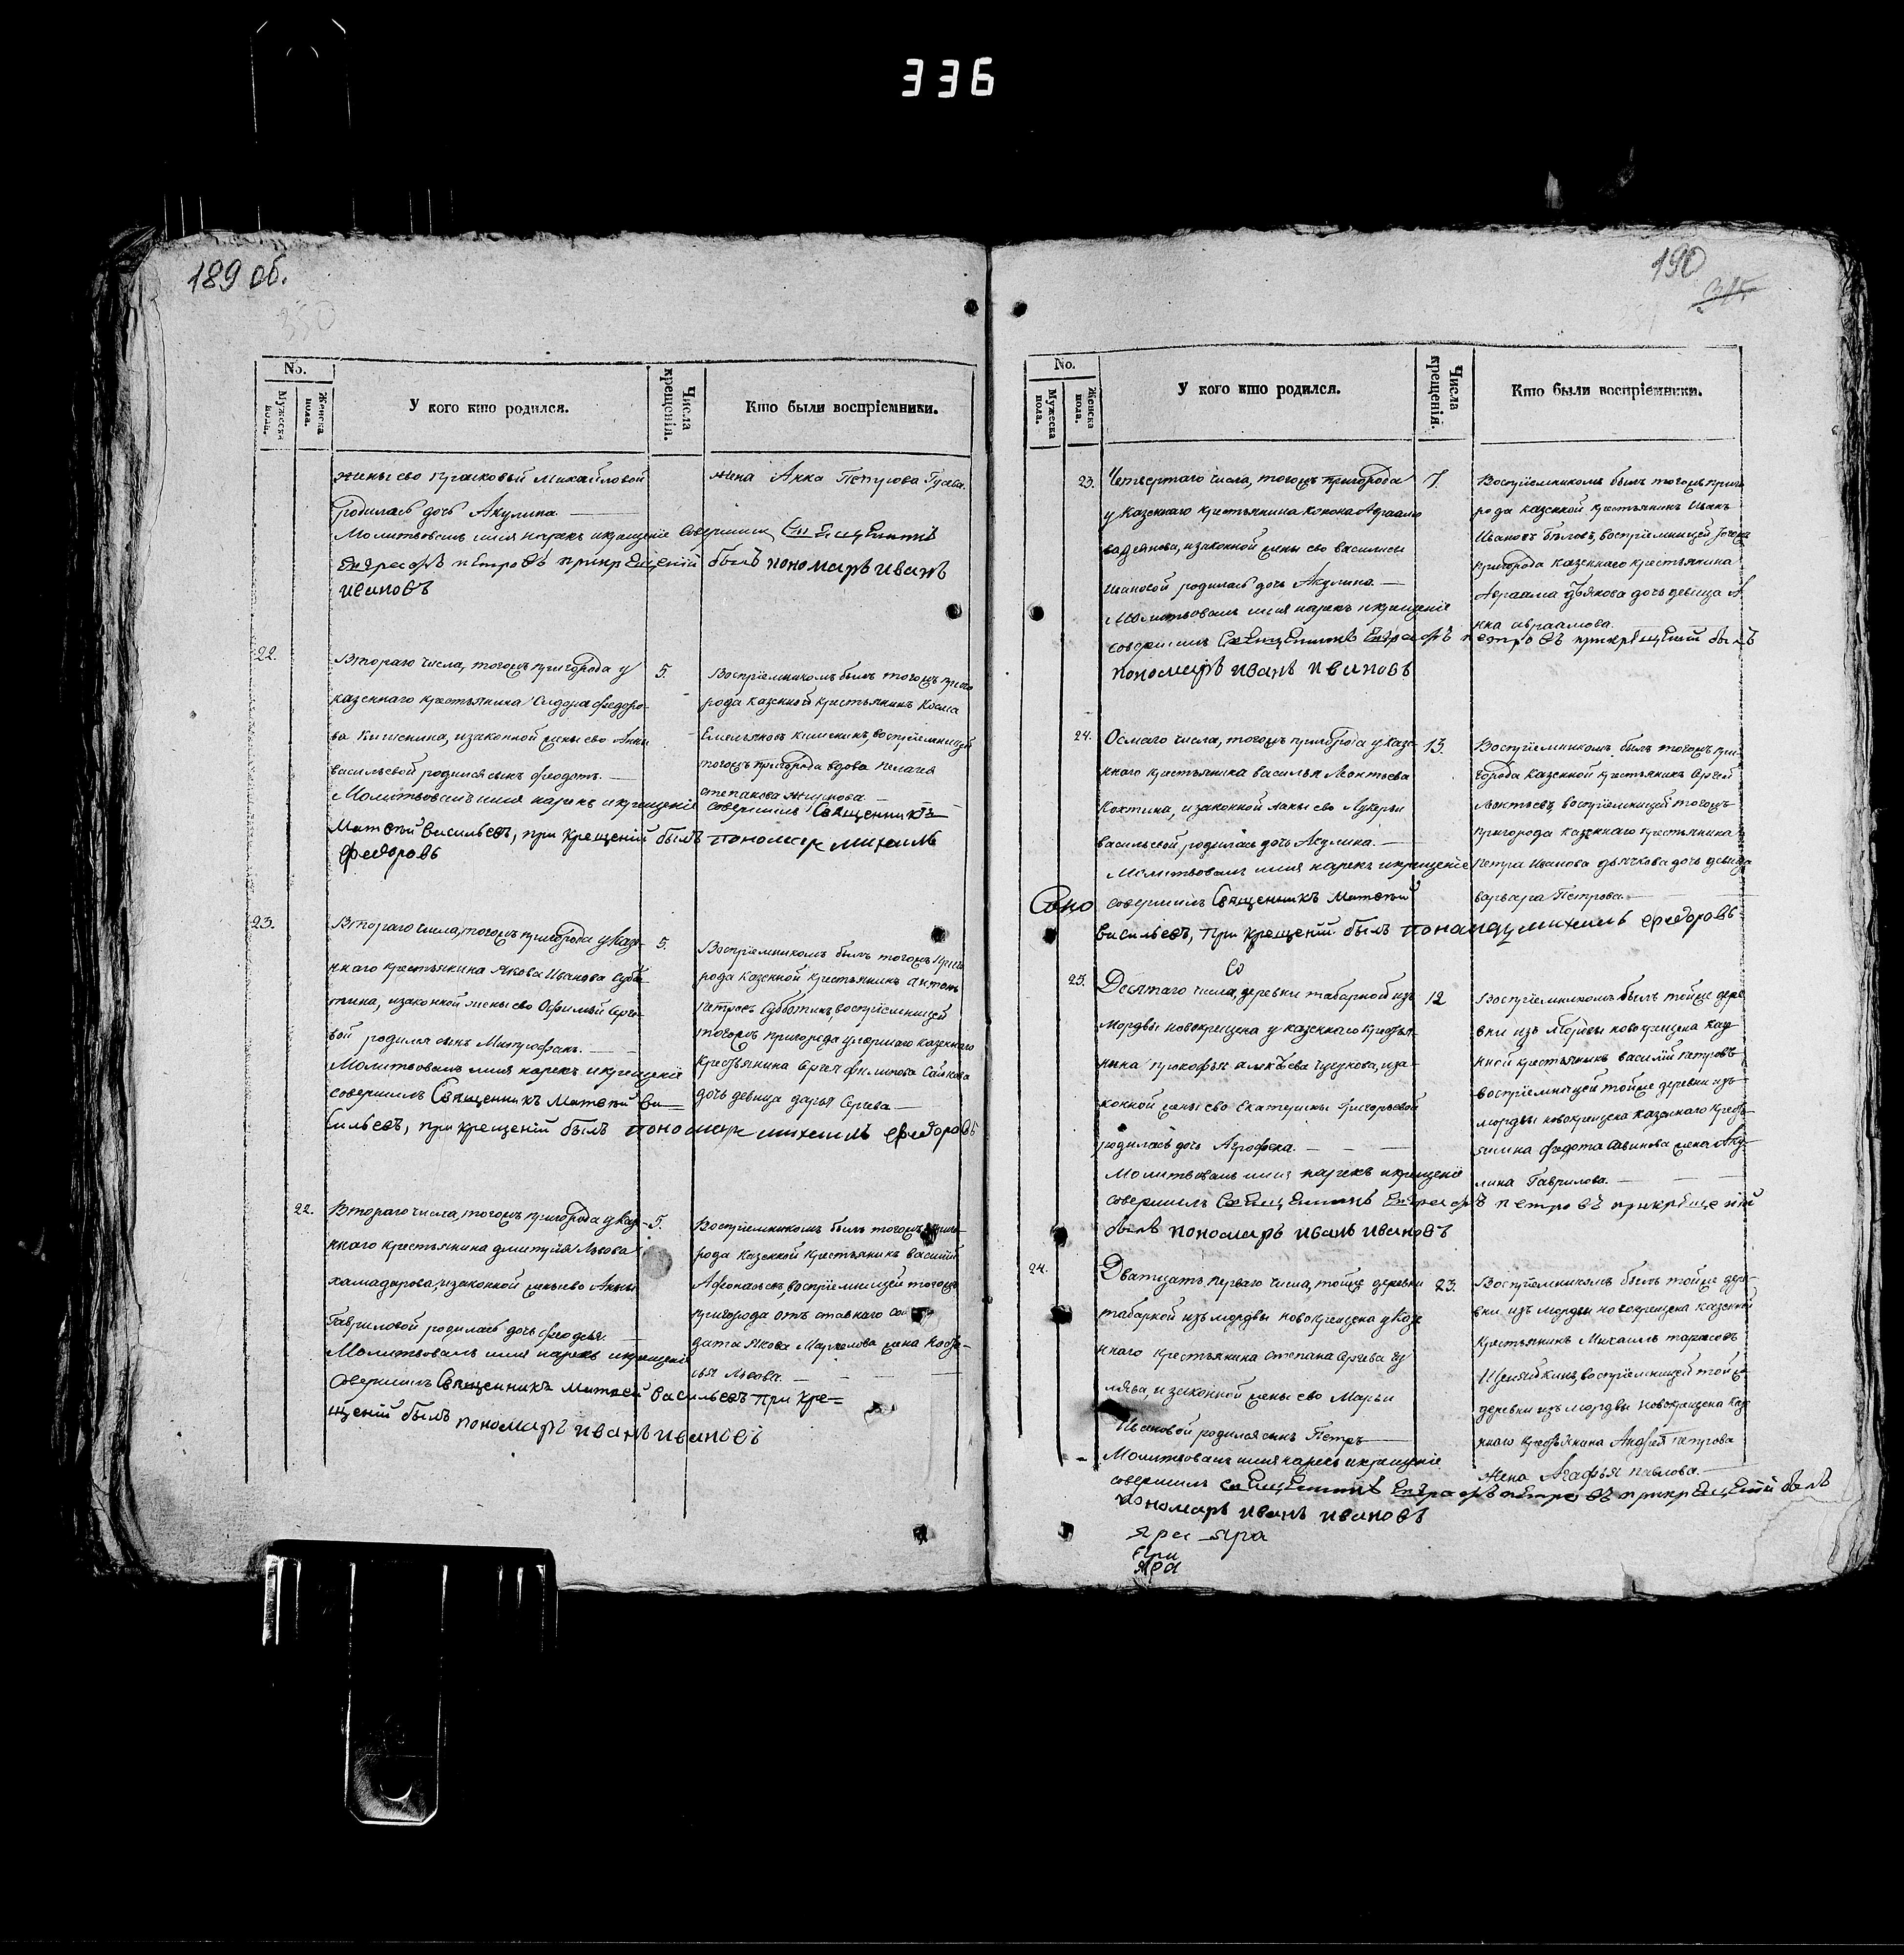 336
189 об.
350
No.
Мужеска пола.
Женска пола.
У кого кто родился.
Числа крещенія.
Кто были воспріемники.
жены ево Прасковьи Михайловой
родилась дочь Акулина.
Молитвовалъ имя нарекъ и крещеніе совершилъ Священникъ
Евграфъ Петровъ при крещеніи былъ пономарь Иванъ
Ивановъ
жена Анна Петрова
22.
Втораго числа, тогожъ пригорода у
казеннаго крестьянина Сидора Федоро-
ва Кишенина, и законной жены ево Анны
васильевой родился сынъ Федотъ.
Молитвовалъ имя нарекъ и крещеніе совершилъ Священникъ
Матвѣй Васильевъ, при крещеніи былъ пономарь Михаилъ
Федоровъ
5.
Воспріемникомъ былъ тогожъ приго
рода казенной крестьянинъ Косма
Емельяновъ Кишенинъ, воспріемницей
тогожъ пригорода вдова Пелагея
степанова
23.
Втораго числа, тогожъ пригорода у казе-
ннаго крестьянина Якова Иванова Суббо-
тина, и законной жены ево Офимьи Серге-
вой родился сынъ Митрофанъ.
Молитвовалъ имя нарекъ и крещеніе
совершилъ Священникъ Матвѣй Ва-
сильевъ, при крещеніи былъ пономарь Михаилъ Федоровъ
5.
Воспріемникомъ былъ тогожъ приго
рода казенной крестьянинъ антонъ
Петровъ Субботинъ, воспріемницей
тогожъ пригорода умершаго казеннаго
крестьянина Сергея филипова
дочь девица дарья Сергева
22.
Втораго числа, тогожъ пригорода у казе-
ннаго крестьянина дмитрия Львова
хамадарова, и законной жены ево Анны
Гавриловой родилась дочь Феодосья.
Молитвовалъ имя нарекъ и крещеніе
Совершилъ Священникъ Матвей Васильевъ При кре-
щеніи былъ пономарь Иванъ Ивановъ
5.
Воспріемникомъ былъ тогожъ приго
рода казенной крестьянинъ василій
Афонасьевъ, воспріемницей тогожъ
пригорода отъ ставнаго сол
дата Якова жена
Львова.
190
No.
Мужеска пола.
Женска пола.
У кого кто родился.
Числа крещенія.
Кто были воспріемники.
23.
Четвертаго числа, тогожъ пригорода
у казеннаго крестьянина Конона Абрамо
ва, и законной жены ево василисы
Ивановой родилась дочь Акулина.
Молитвовалъ имя нарекъ и крещеніе
совершилъ Священникъ Евграфъ Петровъ при крещеніи былъ
пономарь Иванъ Ивановъ
7.
Воспріемникомъ былъ тогожъ приго
рода казенной крестьянинъ Иванъ
Ивановъ Бѣловъ, воспріемницей тогожъ
пригорода казеннаго крестьянина
Авраама дочь девица А
нна авраамова.
24.
Осмаго числа, тогожъ пригорода у казе-
ннаго крестьянина василья Леонтьева
Кохтина, и законной жены ево Лукерьи
васильевой родилась дочь Акулина.
Молитвовалъ имя нарекъ и крещеніе
совершилъ Священникъ Матвѣй
Васильевъ, При крещеніи былъ пономарь Михаилъ Федоровъ
13.
Воспріемникомъ былъ тогожъ при-
города казенной крестьянинъ Сергей
Леонтьевъ, воспріемницей тогожъ
пригорода казеннаго крестьянина
Петра Иванова дьячкова дочь девица
варвара Петрова.
25.
Десятаго числа, деревни табарной изъ
мордвы новокрещена у казеннаго крестья-
нина прокофья алексѣева, и за-
конной жены ево Екатерины Григорьевой
родилась дочь Агрофена.
Молитвовалъ имя нарекъ и крещеніе
совершилъ Священникъ Евграфъ Петровъ при крещеніи
былъ пономарь Иванъ Ивановъ
12
Воспріемникомъ былъ тойже дере
вни изъ мордвы новокрещена казе
нной крестьянинъ василій петровъ
воспріемницей тойже деревни изъ
мордвы новокрещена казеннаго кресть-
янина федота Савинова жена Аку-
лина Гаврилова.
24.
Дватцать перваго числа, тойже деревни
табарной изъ мордвы новокрещена у казе
ннаго крестьянина степана Сергева
и законной жены ево Марьи
Ивановой родился сынъ Петръ
Молитвовалъ имя нарекъ и крещеніе
совершилъ Священникъ Евграфъ Петровъ при крещеніи былъ
пономарь Иванъ Ивановъ
23.
Воспріемникомъ былъ тойже дере-
вни изъ мордвы новокрещена казенной
крестьянинъ Михаилъ тарасовъ
воспріемницей тойже
деревни изъ мордвы новокрещена казе
ннаго крестьянина Андрея петрова
жена Агафья павлова.